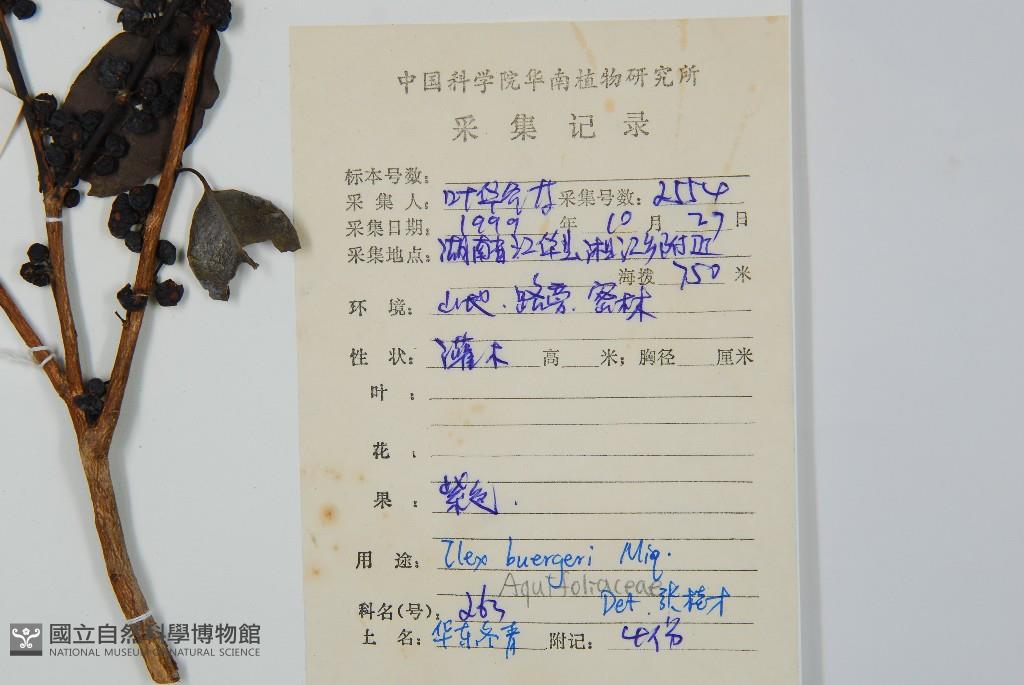 中国科学院华南植物研究所
采集记录
标本号数:
采集人: 叶华谷 采集号数: 2554
采集日期: 1999年10月27日
采集地点: 湖南省江华县湘江乡附近
海拨 750 米
环境: 山地.路旁.密林
性状: 灌木 高 米; 胸径 厘米
叶:
花:
果: 紫色.
用途: Ilex buergeri Miq.
Aquifoliaceae
科名(号): 263 Det. 张桂才
土名: 华东冬青 附记: 4份
國立自然科學博物館
NATIONAL MUSEUM OF NATURAL SCIENCE